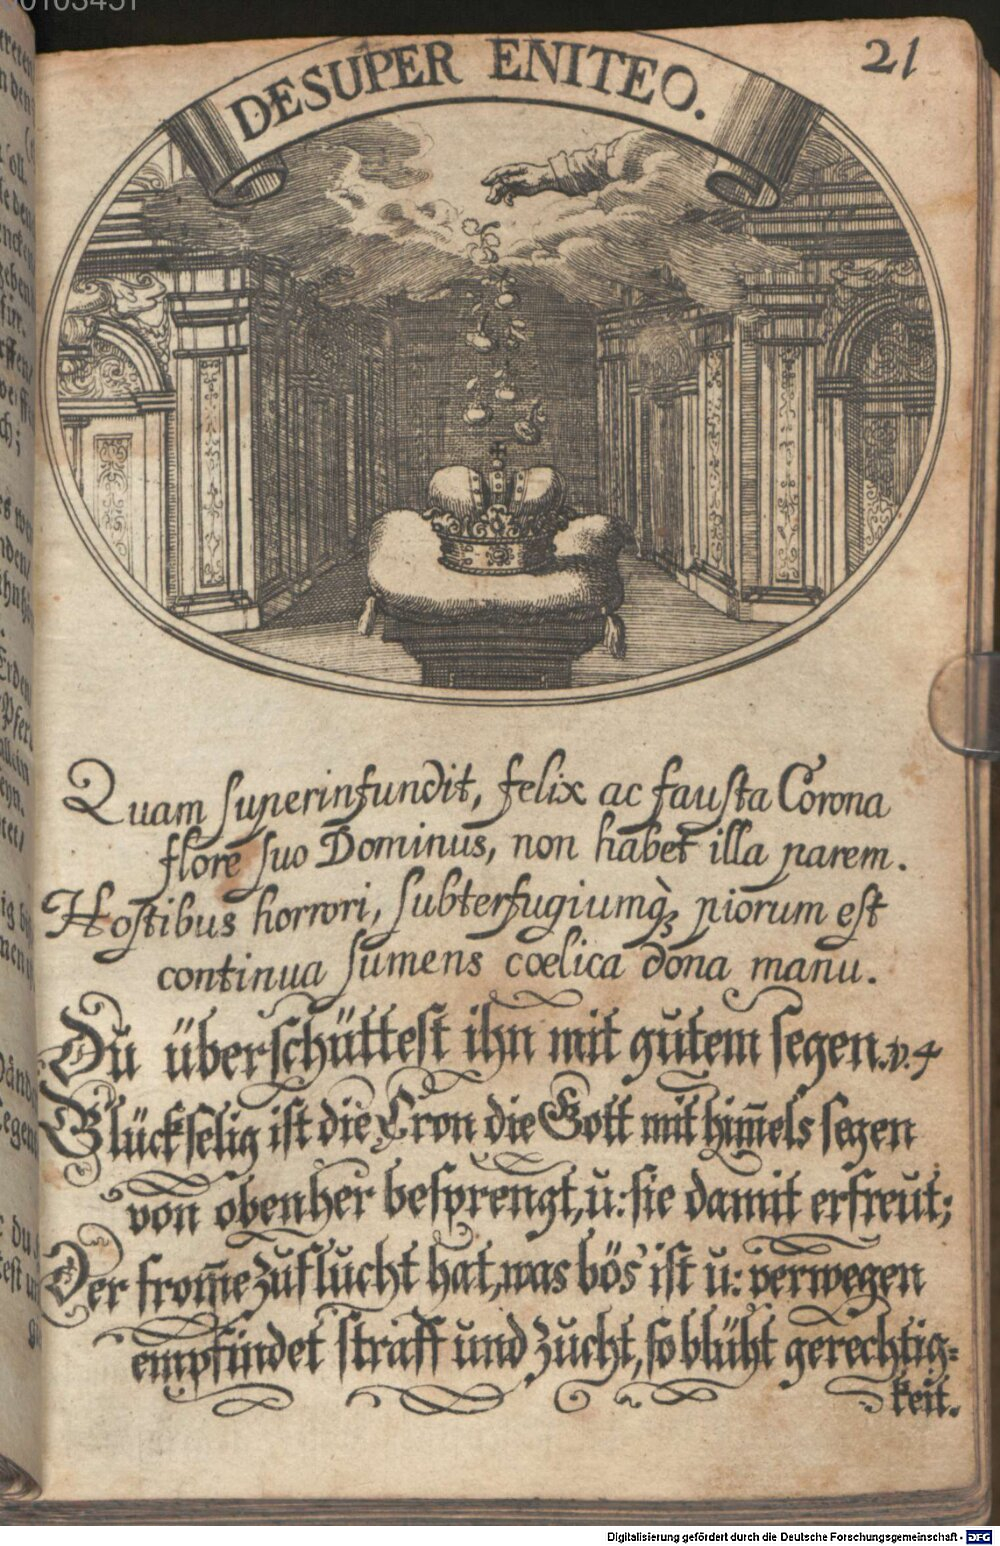 21
DESUPER ENITEO.
Quam superinfundit, felix ac fausta Corona
flore suo Dominus, non habet illa parem.
Hostibus horrori, subterfugiumq́ꝫ piorum est
continua sumens cœlica dona manu.
Du überschüttest ihn mit gutem segen. v. 4
Glückselig ist die Cron die Gott mit him̄els segen
von obenher besprengt, u: sie damit erfreut;
Der from̄e zuflucht hat, was bös ist u: verwegen
empfindet straff und zucht, so blüht gerechtig=
keit.
Digitalisierung gefördert durch die Deutsche Forschungsgemeinschaft - DFG